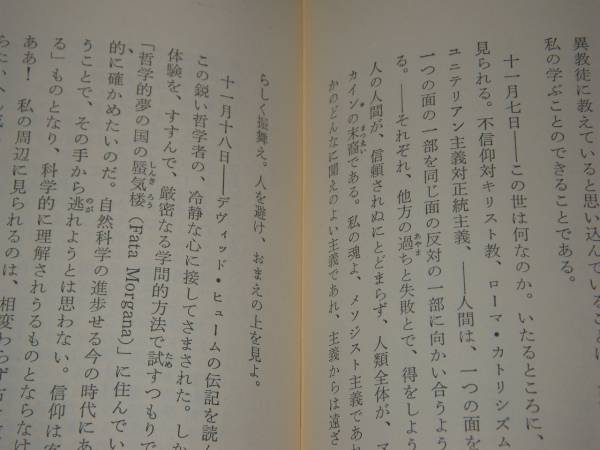 異教徒に教えていると思い込んでいること
私の学ぶことのできることである。
十一月七日――この世は何なのか。いたるところに、
見られる。不信仰対キリスト教、ローマ・カトリシズム
ユニテリアン主義対正統主義、――人間は、一つの面を
一つの面の一部を同じ面の反対の一部に向かい合うよう
る。――それぞれ、他方の過ちと失敗とで、得をしよう
人の人間が、信頼されぬにとどまらず、人類全体が、マ
カインの末裔である。私の魂よ、メソジスト主義であれ
かのどんなに聞えのよい主義であれ、主義からは遠ざ
らしく振舞え。人を避け、おまえの上を見よ。
十一月十八日――デヴィッド・ヒュームの伝記を読ん
この鋭い哲学者の、冷静な心に接してさまされた。しか
体験を、すすんで、厳密なる学問的方法で試すつもりで
「哲学的夢の国の蜃気楼(Fata Morgana)」に住んでい
的に確かめたいのだ。自然科学の進歩せる今の時代にあ
うことで、その手から逃れようとは思わない。信仰は客
る」ものとなり、科学的に理解されうるものとならなけ
ああ! 私の周辺に見られるのは、相変わらず